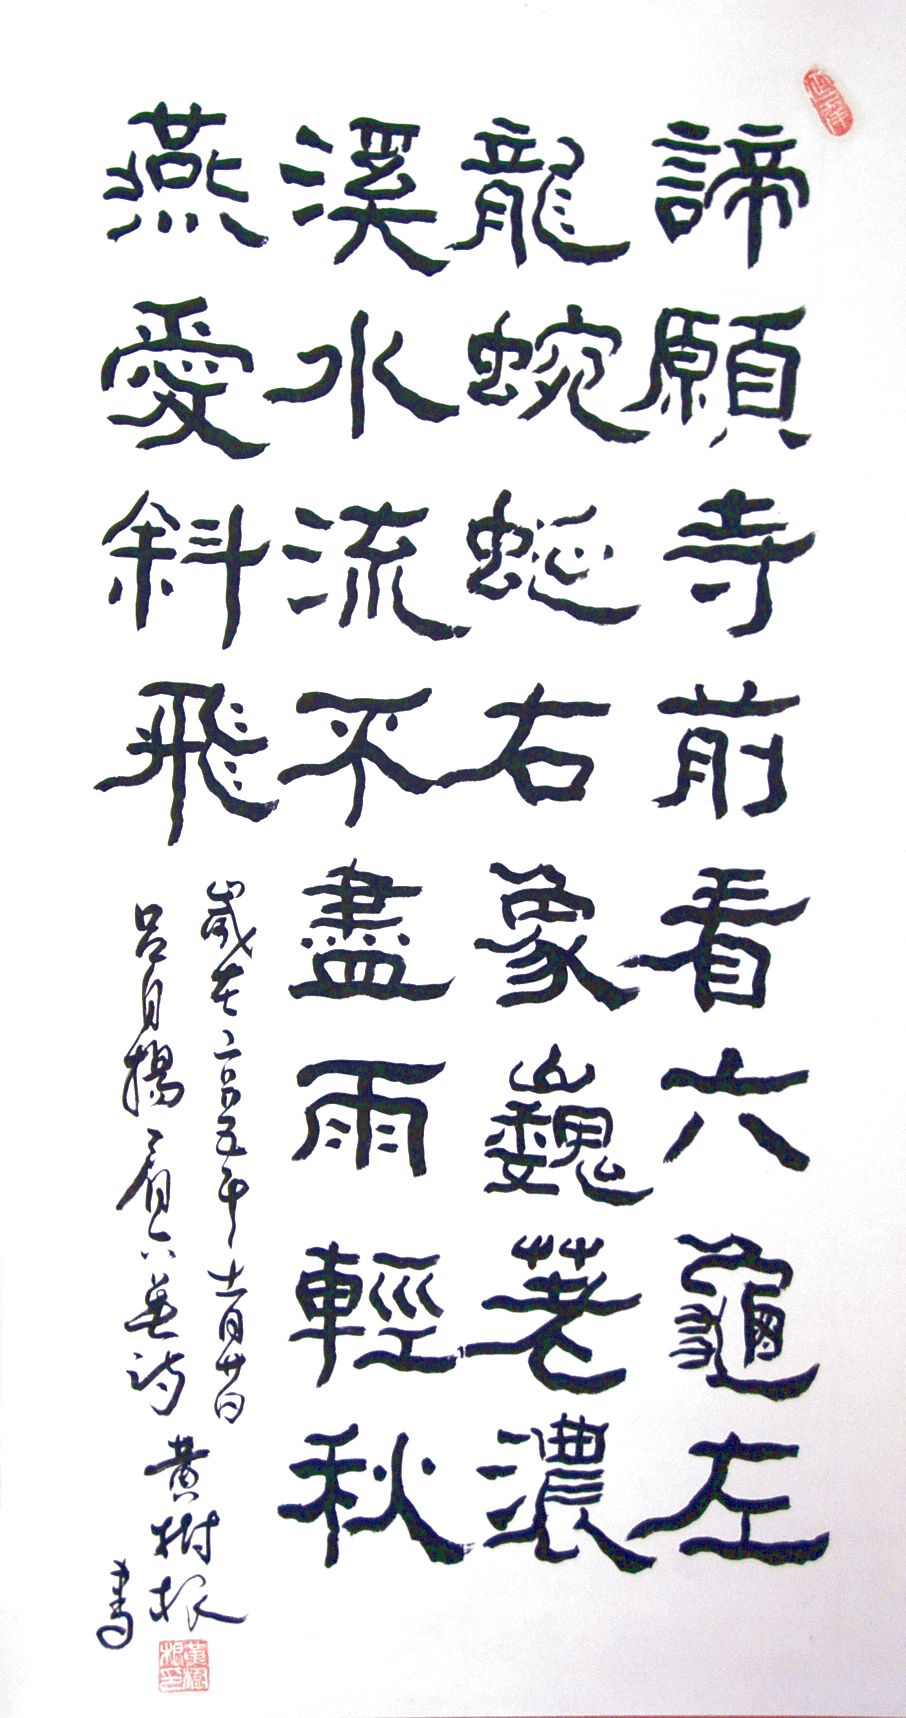 諦願寺前看六龜左
龍蜿蜒右象巍荖濃
溪水流不盡雨輕秋
燕愛斜飛
歲在二〇〇五年十一月廿日
呂自揚看六龜詩
黃樹根
書
黃樹根印